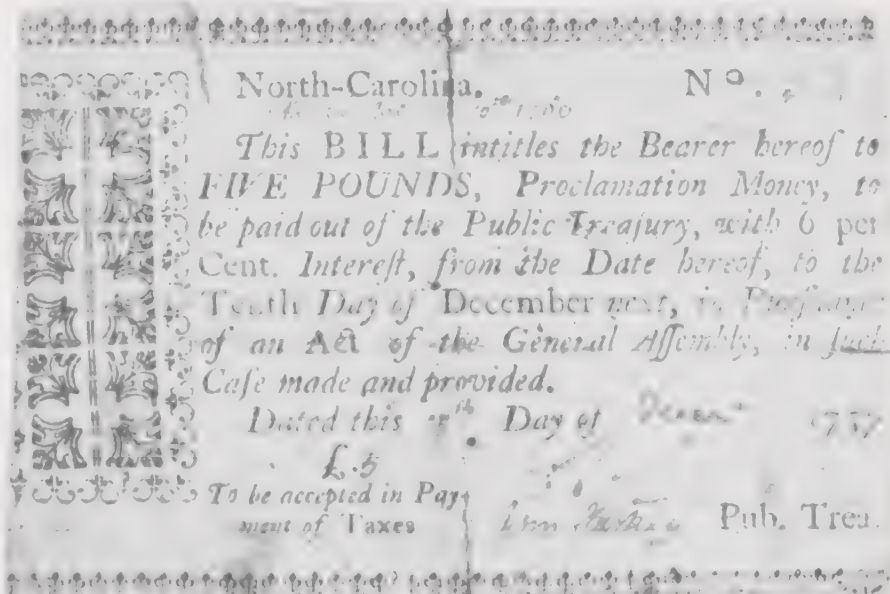 North-Carolina. No.
1760
This BILL intitles the Bearer hereof to
FIVE POUNDS, Proclamation Money, to
be paid out of the Public Treaſury, with 6 per
Cent. Intereſt, from the Date hereof, to the
Tenth Day of December next, in Purſuance
of an Act of the General Aſſembly, in ſuch
Caſe made and provided.
Dated this Day of 1757
£.5
To be accepted in Pay-
ment of Taxes
Pub. Trea.